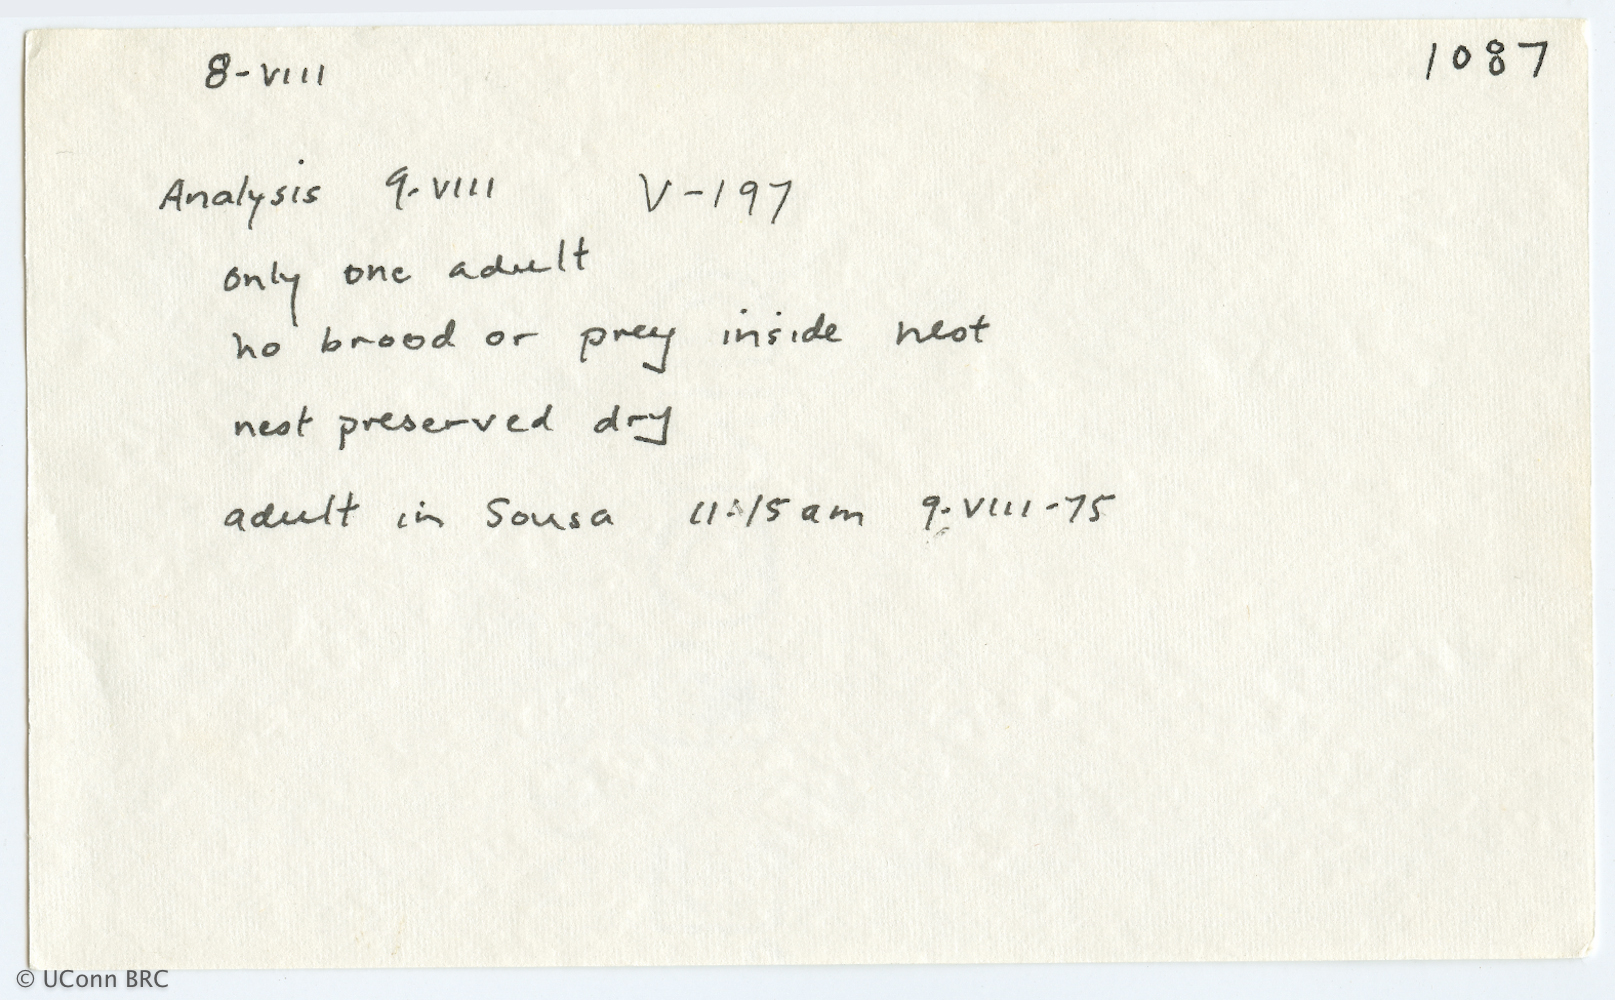 8-VIII 1087
Analysis 9-VIII V-197
only one adult
no brood or prey inside nest
nest preserved dry
adult in Sousa 11:15 am 9-VIII-75
© UConn BRC